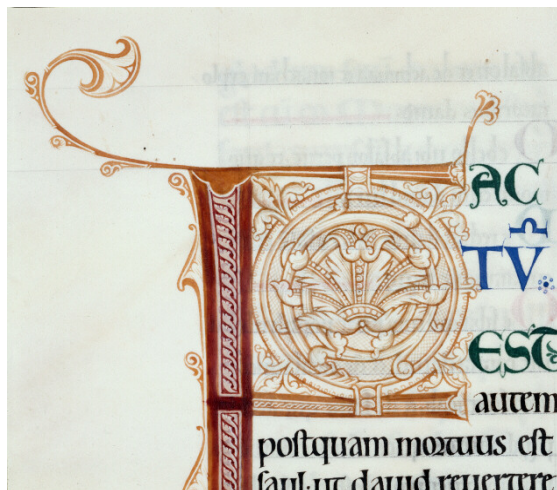 FACTU
EST
autem
postquam mortuus est
saul·ut dauid reuertere